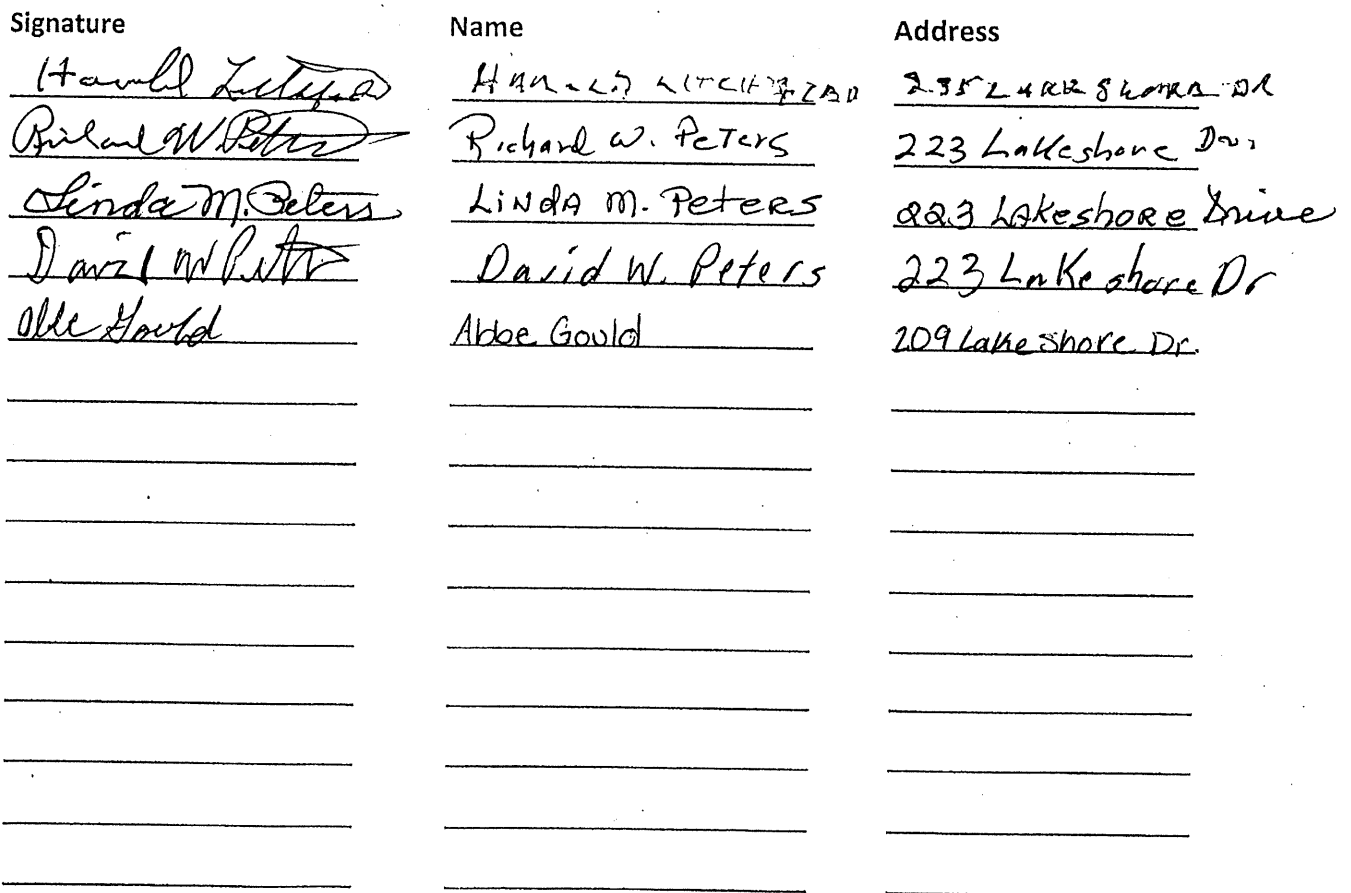 Signature Name Address
Harold Litchfield HAROLD LITCHFIELD 235 LAKE SHORE DR
Richard W. Peters Richard W. Peters 223 Lakeshore
Linda M. Peters LiNdA M. PeteRS 223 LAkeshoRe Drive
David W Peters David W. Peters 223 Lakeshore Dr
Abbe Gould Abbe Gould 209 Lakeshore Dr.